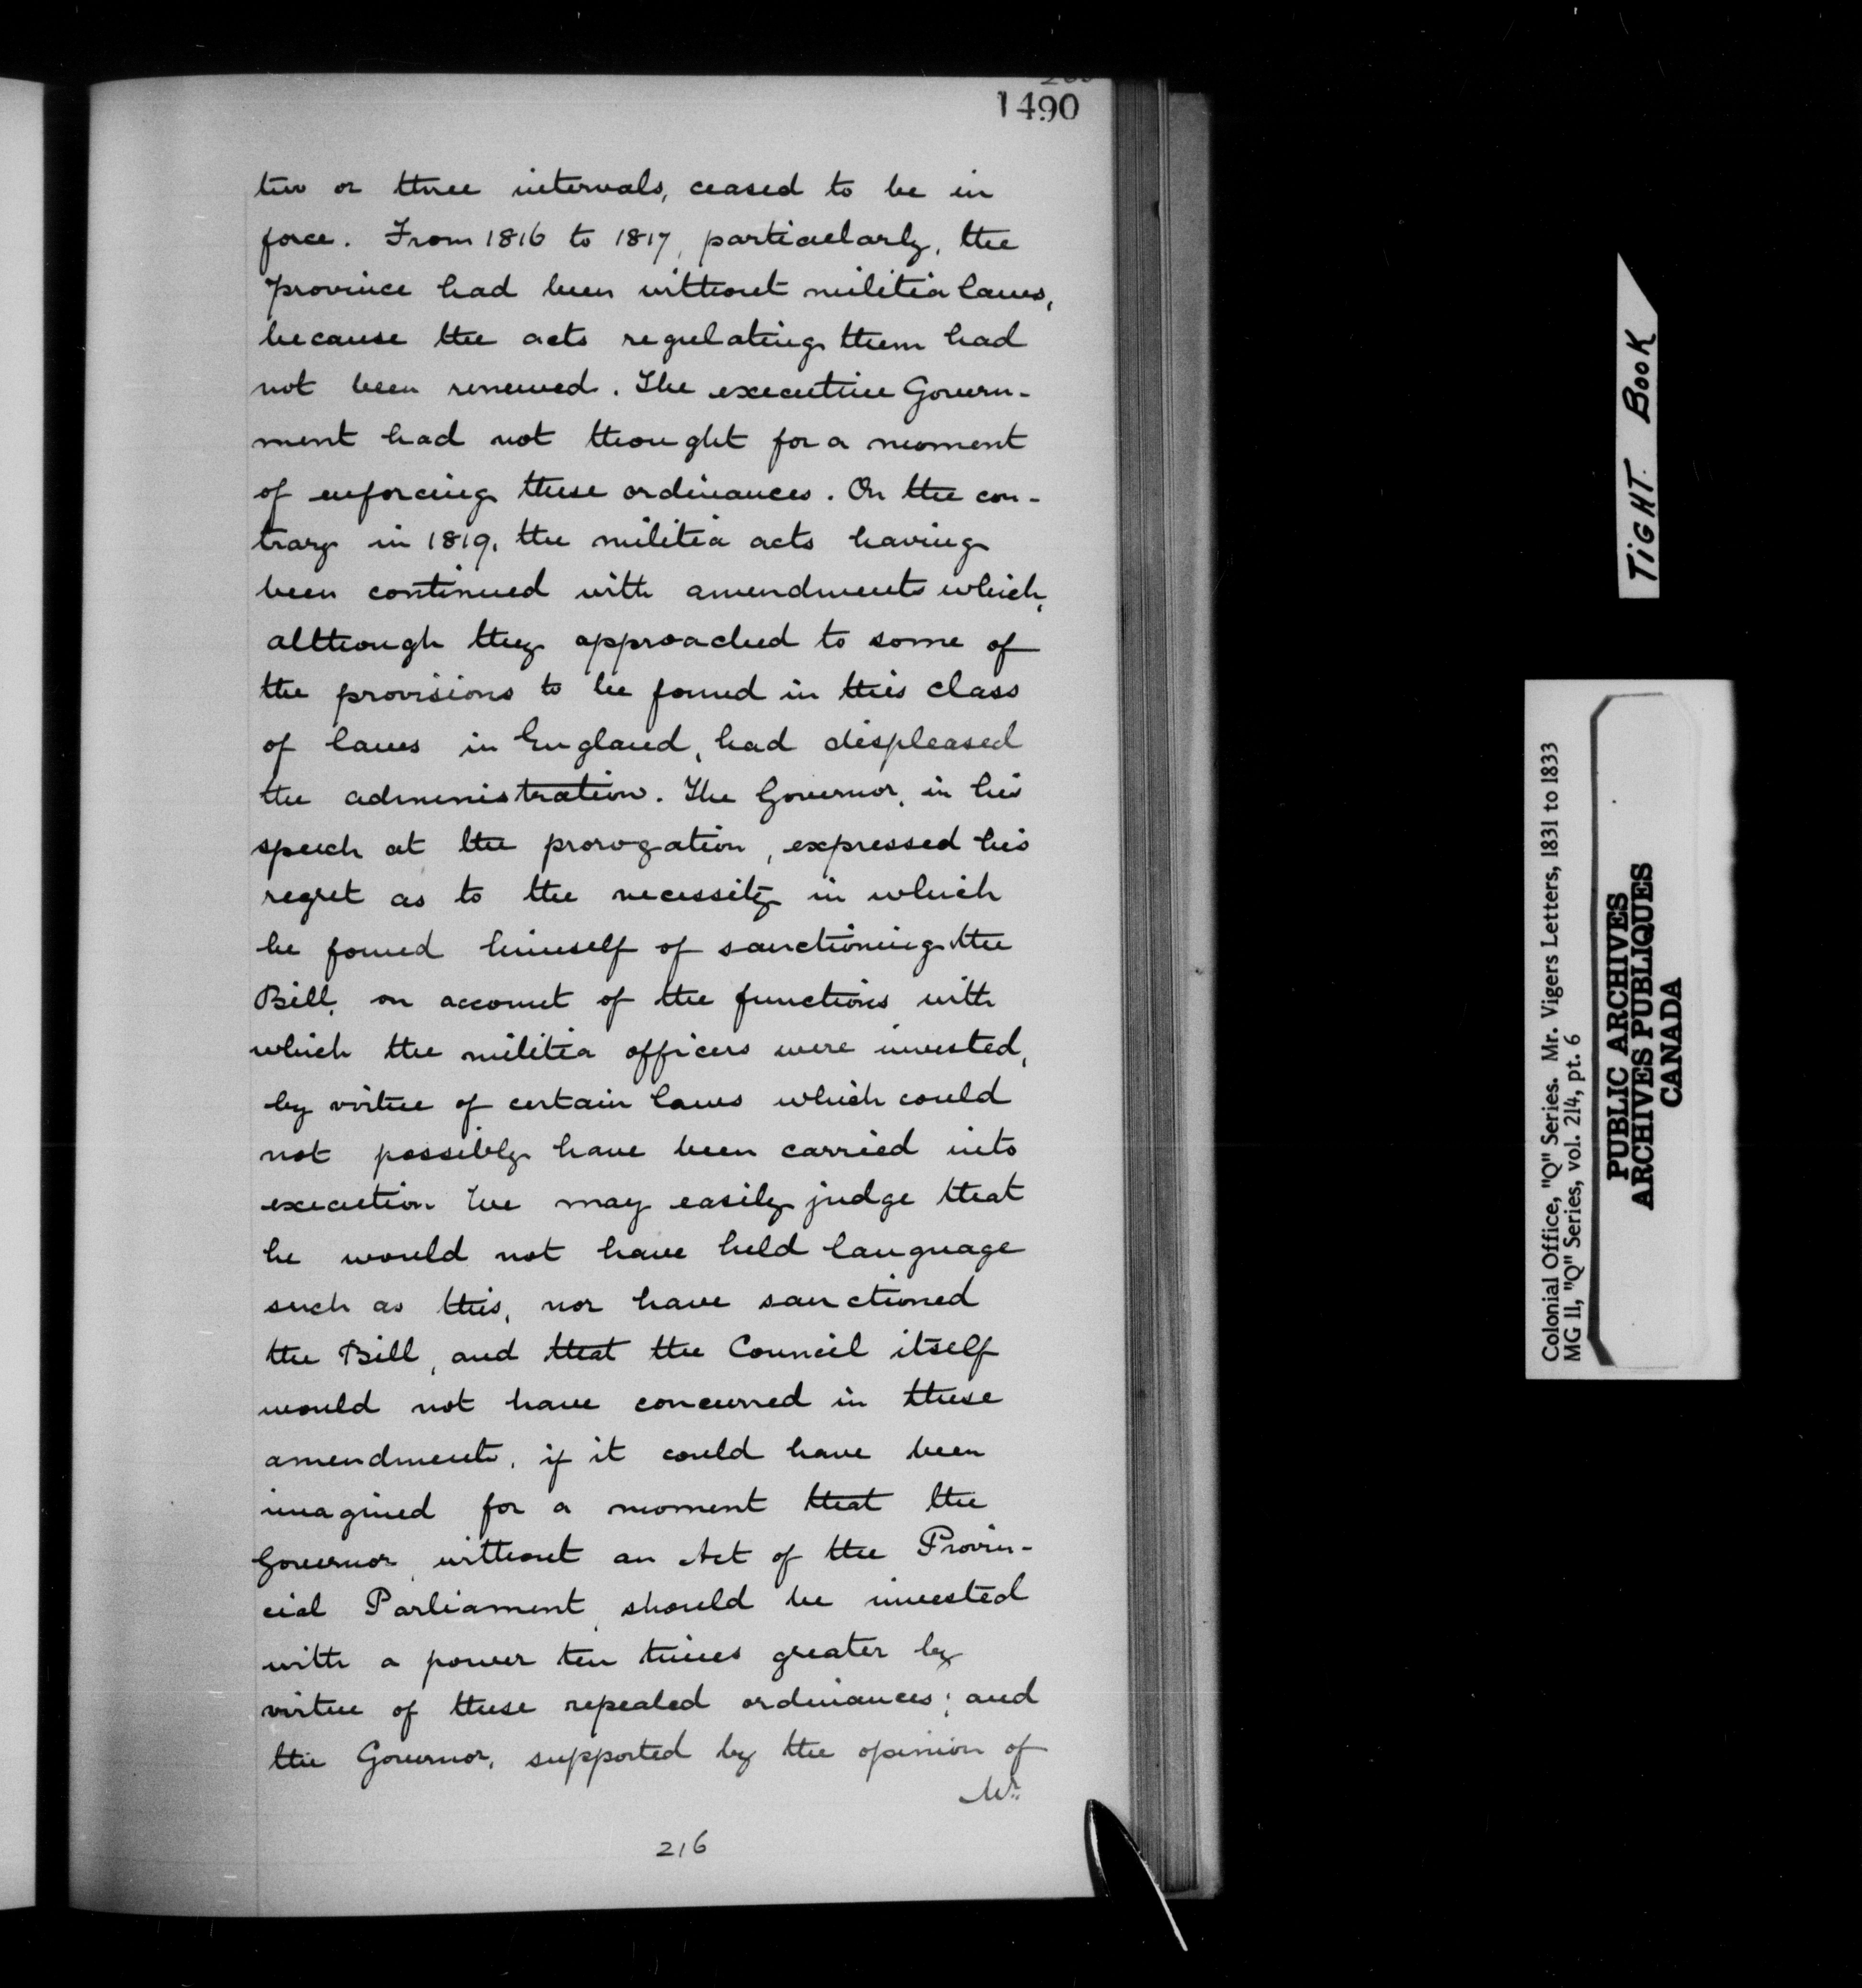 1490
two or three intervals, ceased to be in
force. From 1816 to 1817, particularly, the
province had been without militia laws,
because the acts regulating them had
not been renewed. The executive Govern-
ment had not thought for a moment
of enforcing these ordinances. On the con-
trary in 1819, the militia acts having
been continued with amendments which,
although they approached to some of
the provisions to be found in this class
of laws in England, had displeased
the administration. The Governor, in his
speech at the prorogation, expressed his
regret as to the necessity in which
he found himself of sanctioning the
Bill, on account of the functions with
which the militia officers were invested,
by virtue of certain laws which could
not possibly have been carried into
execution We may easily judge that
he would not have held language
such as this, nor have sanctioned
the Bill, and that the Council itself
would not have concurred in these
amendments, if it could have been
imagined for a moment that the
Governor, without an Act of the Provin-
cial Parliament, should be invested
with a power ten times greater by
virtue of these repealed ordinances; and
the Governor, supported by the opinion of
Mr.
216
TIGHT BOOK
Colonial Office, "Q" Series. Mr. Vigers Letters, 1831 to 1833
MG 11, "Q" Series, vol. 214, pt. 6
PUBLIC ARCHIVES
ARCHIVES PUBLIQUES
CANADA